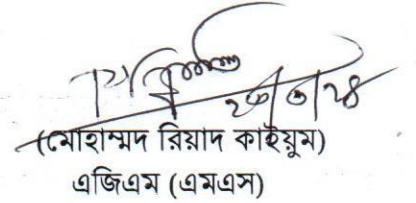 (মোহাম্মদ রিয়াদ কাইয়ুম)
এজিএম (এমএস)